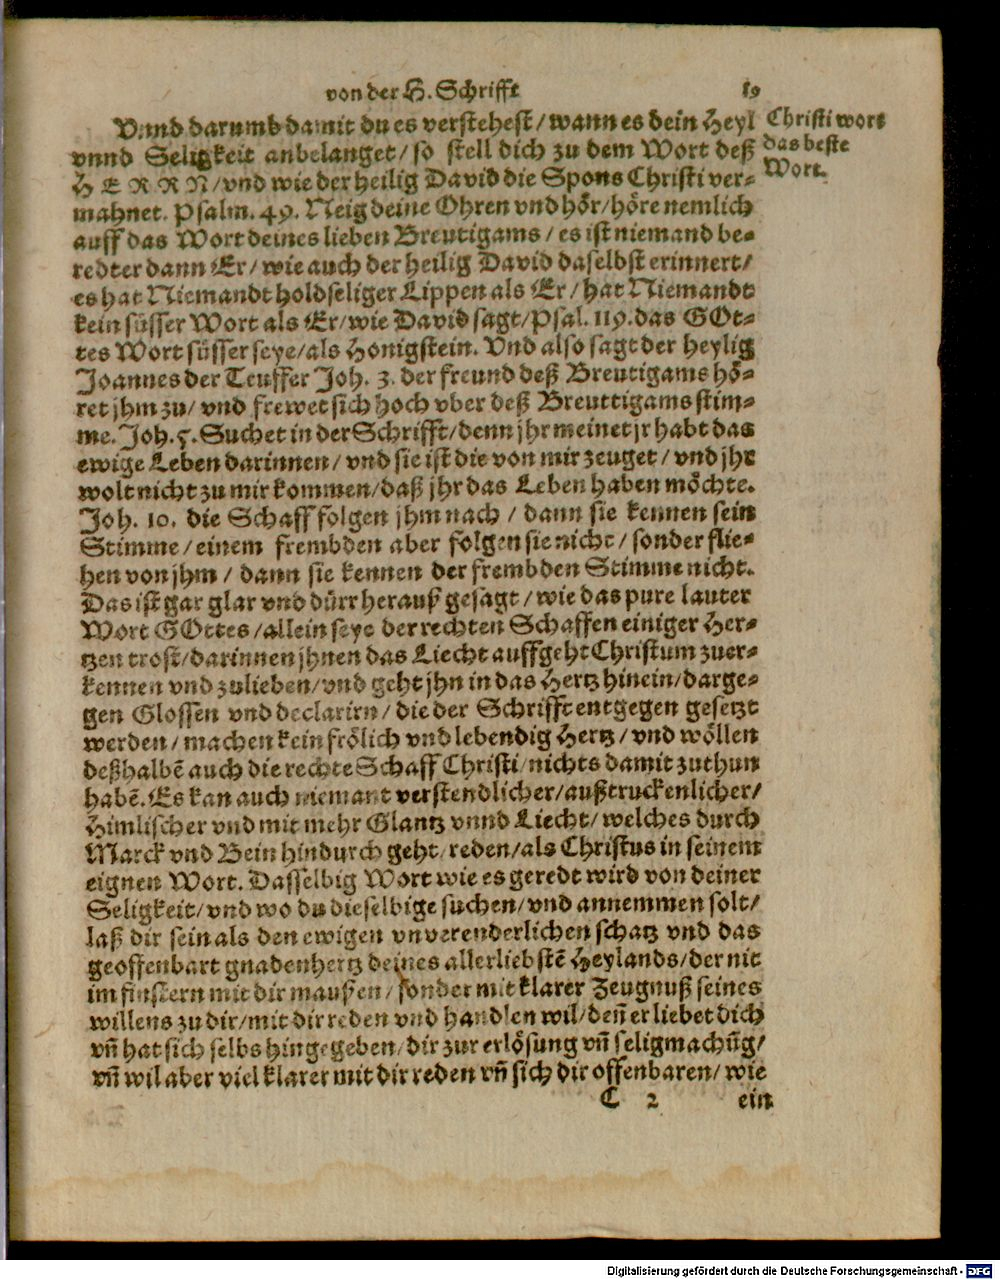 von der H. Schrifft 19
Vnnd darumb damit du es verstehest/ wann es dein Heyl
Christi wort
vnnd Seligkeit anbelanget/ so stell dich zu dem Wort deß
das beste
HERRN/ vnd wie der heilig David die Spons Christi ver-
Wort.
mahnet. Psalm. 49. Neig deine Ohren vnd hör/ höre nemlich
auff das Wort deines lieben Breutigams/ es ist niemand be-
redter dann Er/ wie auch der heilig David daselbst erinnert/
es hat Niemandt holdseliger Lippen als Er/ hat Niemandt
kein süsser Wort als Er/ wie David sagt/ Psal. 119. das GOt-
tes Wort süsser seye/ als Honigstein. Vnd also sagt der heylig
Joannes der Teuffer Joh. 3. der freund deß Breutigams hö-
ret jhm zu/ vnd frewet sich hoch vber deß Breuttigams stim-
me. Joh. 5. Suchet in der Schrifft/ denn jhr meinet jr habt das
ewige Leben darinnen/ vnd sie ist die von mir zeuget/ vnd jhr
wolt nicht zu mir kommen/ daß jhr das Leben haben möchte.
Joh. 10. die Schaff folgen jhm nach/ dann sie kennen sein
Stimme/ einem frembden aber folgen sie nicht/ sonder flie-
hen von jhm/ dann sie kennen der frembden Stimme nicht.
Das ist gar glar vnd dürr herauß gesagt/ wie das pure lauter
Wort GOttes/ allein seye der rechten Schaffen einiger Her-
tzen trost/ darinnen jhnen das Liecht auffgeht Christum zuer-
kennen vnd zulieben/ vnd geht jhn in das Hertz hinein/ darge-
gen Glossen vnd declarirn/ die der Schrifft entgegen gesetzt
werden/ machen kein frölich vnd lebendig Hertz/ vnd wöllen
deßhalbē auch die rechte Schaff Christi/ nichts damit zuthun
habē. Es kan auch niemant verstendlicher/ außtruckenlicher/
Himlischer vnd mit mehr Glantz vnnd Liecht/ welches durch
Marck vnd Bein hindurch geht/ reden/ als Christus in seinem
eignen Wort. Dasselbig Wort wie es geredt wird von deiner
Seligkeit/ vnd wo du dieselbige suchen/ vnd annemmen solt/
laß dir sein als den ewigen vnverenderlichen schatz vnd das
geoffenbart gnadenhertz deines allerliebstē Heylands/ der nit
im finstern mit dir maußen/ sonder mit klarer Zeugnuß seines
willens zu dir/ mit dir reden vnd handlen wil/ deñ er liebet dich
vñ hat sich selbs hingegeben/ dir zur erlösung vñ seligmachūg/
vñ wil aber viel klarer mit dir reden vñ sich dir offenbaren/ wie
C 2 ein
Digitalisierung gefördert durch die Deutsche Forschungsgemeinschaft - DFG